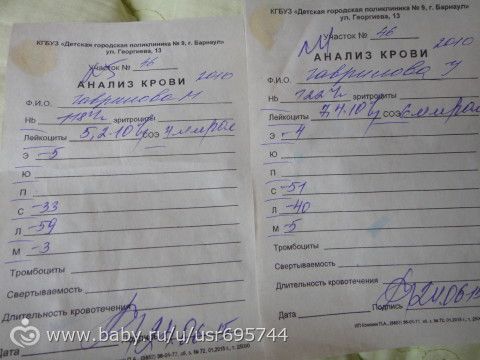 КГБУЗ «Детская городская поликлиника № 9, г. Барнаул»
ул. Георгиева, 13
Участок № 16
АНАЛИЗ КРОВИ
2010
Ф.И.О. Гаврилова М
Hb 118 эритроциты
Лейкоциты 5,2·10 СОЭ 4 мм
Э -5
Ю
П
С -33
Л -59
М -3
Тромбоциты
Свертываемость
Длительность кровотечения
Дата 24.06.15
КГБУЗ «Детская городская поликлиника № 9, г. Барнаул»
ул. Георгиева, 13
Участок № 16
АНАЛИЗ КРОВИ
2010
Ф.И.О. Гаврилова У
Hb 122 эритроциты
Лейкоциты 7,4·10 СОЭ 6 мм
Э -4
Ю
П
С -51
Л -40
М -5
Тромбоциты
Свертываемость
Длительность кровотечения
Дата Подпись 24.06.15
www.baby.ru/u/usr695744